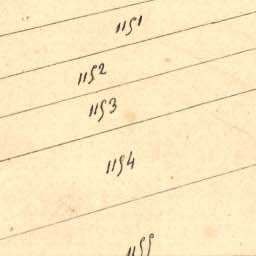 1151
1152
1153
1154
1155